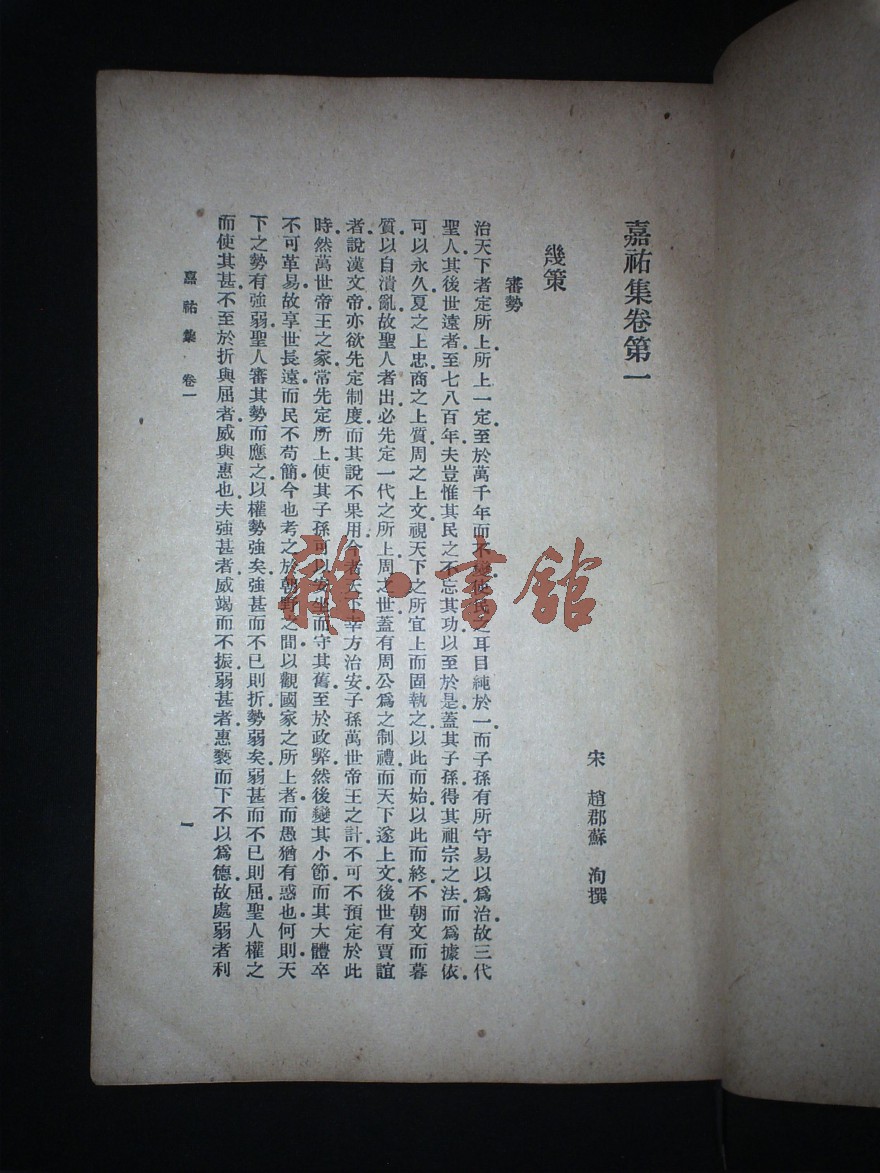 嘉祐集卷第一
宋 趙郡蘇 洵撰
幾策
審勢
治天下者定所上所上一定至於萬千年而不變使民之耳目純於一而子孫有所守易以爲治故三代
聖人其後世遠者至七八百年夫豈惟其民之不忘其功以至於是蓋其子孫得其祖宗之法而爲據依
可以永久夏之上忠商之上質周之上文視天下之所宜上而固執之以此而始以此而終不朝文而暮
質以自潰亂故聖人者出必先定一代之所上周之世蓋有周公爲之制禮而天下遂上文後世有賈誼
者說漢文帝亦欲先定制度而其說不果用今者天下幸方治安子孫萬世帝王之計不可不預定於此
時然萬世帝王之家常先定所上使其子孫可以安坐而守其舊至於政弊然後變其小節而其大體卒
不可革易故享世長遠而民不苟簡今也考之於朝野之間以觀國家之所上者而愚猶有惑也何則天
下之勢有強弱聖人審其勢而應之以權勢強矣強甚而不已則折勢弱矣弱甚而不已則屈聖人權之
而使其甚不至於折與屈者威與惠也夫強甚者威竭而不振弱甚者惠褻而下不以爲德故處弱者利
嘉祐集 卷一
一
雜·書館